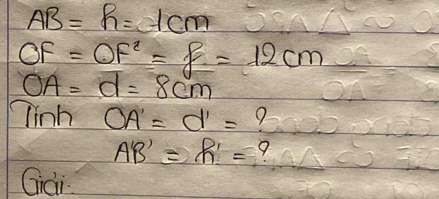 AB = h = 1cm
OF = OF' = f = 12cm
OA = d = 8cm
Tính OA' = d' = ?
A'B' = h' = ?
Giải: